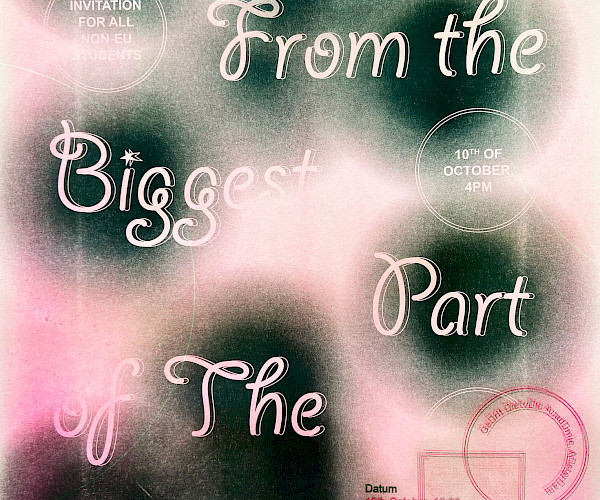 INVITATION
FOR ALL
NON-EU
STUDENTS
From the
Biggest
10TH OF
OCTOBER
4PM
Part
of The
Gerrit Rietveld Academie
Datum